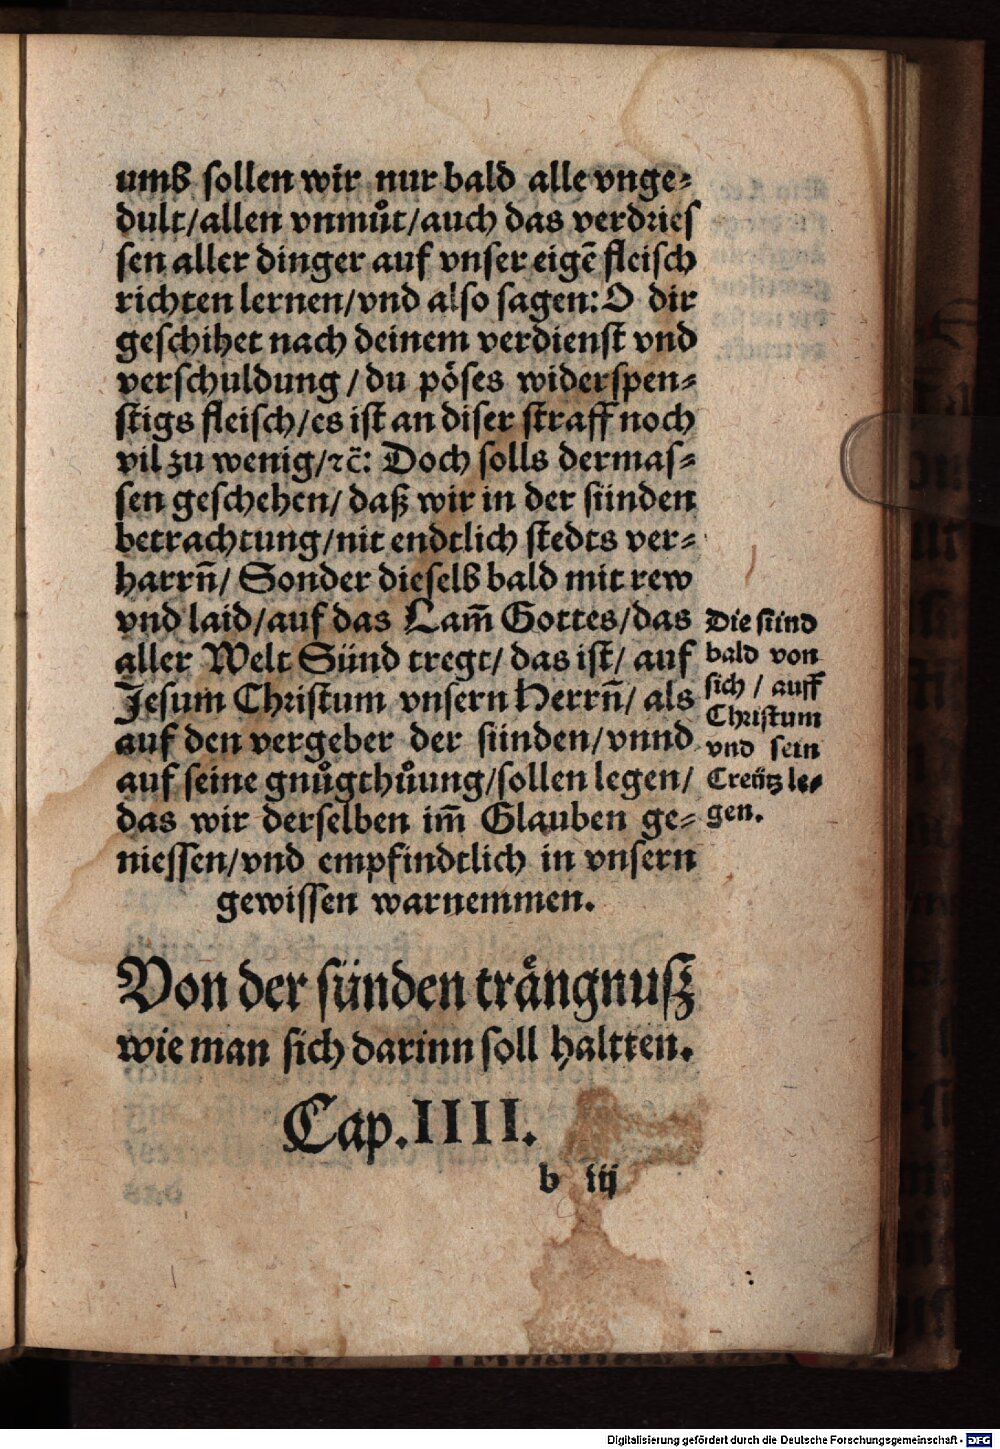 umb sollen wir nur bald alle vnge⸗
dult/allen vnmůt/auch das verdries
sen aller dinger auf vnser eigẽ fleisch
richten lernen/vnd also sagen: O dir
geschihet nach deinem verdienst vnd
verschuldung/du pöses widerspen⸗
stigs fleisch/es ist an diser straff noch
vil zu wenig/ꝛc̃: Doch solls dermas⸗
sen geschehen/daß wir in der sünden
betrachtung/nit endtlich stedts ver⸗
harrñ/Sonder dieselb bald mit rew
vnd laid/auf das Lam̃ Gottes/das
aller Welt Sünd tregt/das ist/auf
Jesum Christum vnsern Herrñ/als
auf den vergeber der sünden/vnnd
auf seine gnůgthůung/sollen legen/
das wir derselben im̃ Glauben ge⸗
niessen/vnd empfindtlich in vnsern
gewissen warnemmen.
Die sünd
bald von
sich/auff
Christum
vnd sein
Creütz le⸗
gen.
Von der sünden trängnuß
wie man sich darinn soll haltten.
Cap. IIII.
b iij
das
Digitalisierung gefördert durch die Deutsche Forschungsgemeinschaft - DFG